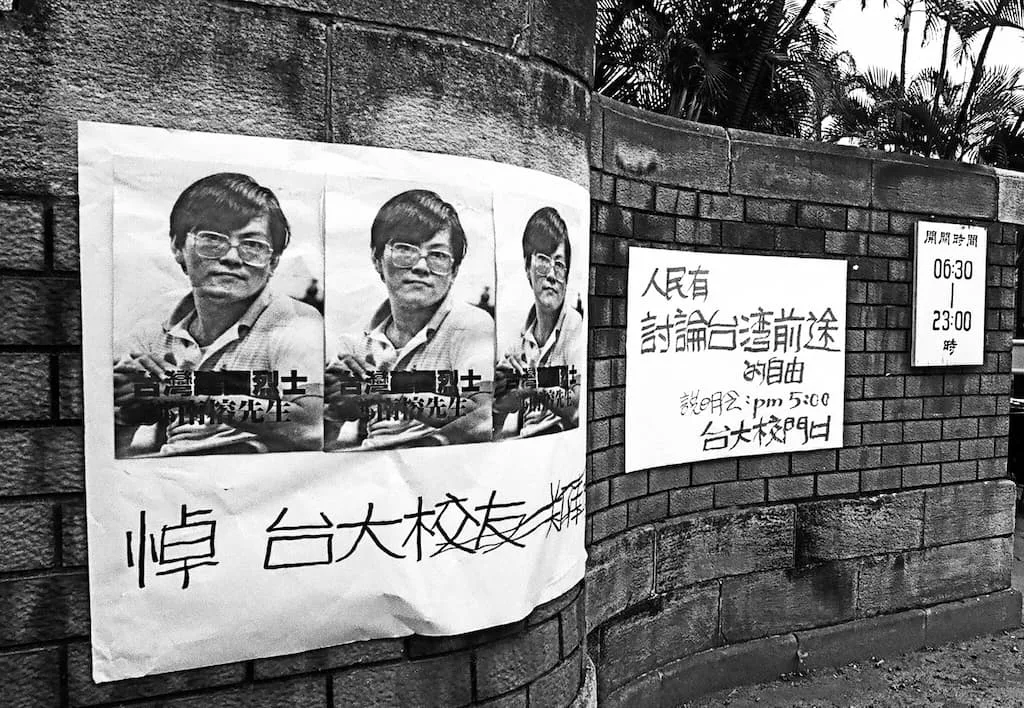 台灣烈士
南榕先生
台灣烈士
南榕先生
台灣烈士
南榕先生
悼 台大校友
人民有
討論台湾前途
的自由
説明会:pm 5:00
台大校門口
開閉時間
06:30
|
23:00
時